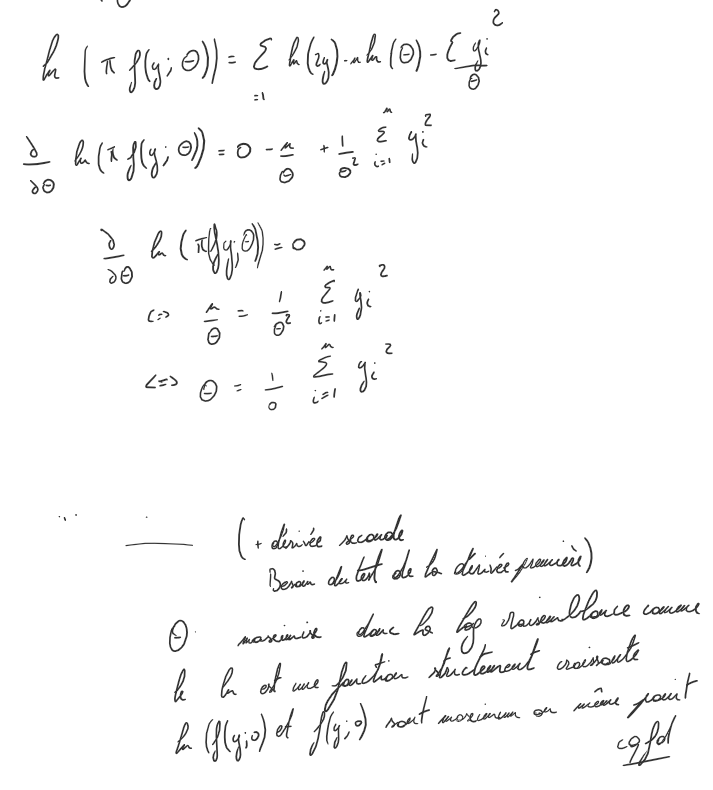 ln (π f(y; θ)) = Σ ln(2y) - n ln(θ) - Σ yi² / θ
=1
∂/∂θ ln(π f(y; θ)) = 0 - n/θ + 1/θ² Σ_{i=1}^{n} yi²
∂/∂θ ln (π(f(y;θ)) = 0
<=> n/θ = 1/θ² Σ_{i=1}^{n} yi²
<=> θ = 1/0 Σ_{i=1}^{n} yi²
(+ dérivée seconde
Besoin du test de la dérivée première)
θ maximise donc la log vraisemblance comme
le ln est une fonction strictement croissante
ln (f(y;0) et f(y;0) sont maximum au même point
cqfd